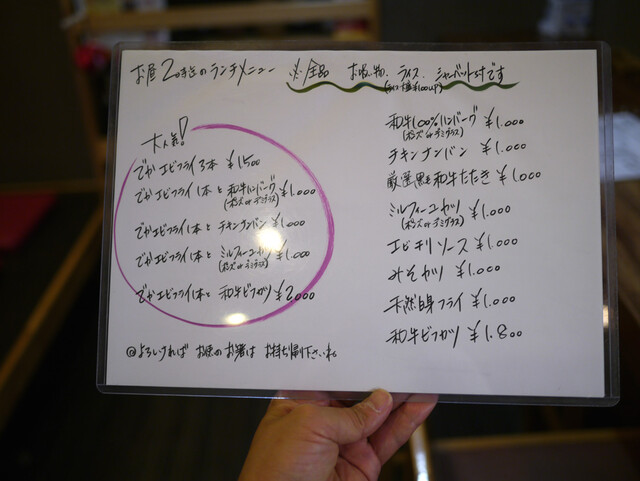 お昼2時迄のランチメニュー
※全品 お吸い物、ライス、シャーベット付です
大人気!
でかエビフライ3本 ¥1500
でかエビフライ1本と和牛ハンバーグ ¥1.000
(ポンズorデミグラス)
でかエビフライ1本とチキンナンバン ¥1.000
でかエビフライ1本とミルフィーユカツ ¥1.000
(ポンズorデミグラス)
でかエビフライ1本と和牛ビフカツ ¥2.000
@よろしければ お席のお箸は お持ち帰り下さいね
和牛100%ハンバーグ ¥1.000
(ポンズorデミグラス)
チキンナンバン ¥1.000
厳選黒毛和牛たたき ¥1,000
ミルフィーユカツ ¥1.000
(ポンズorデミグラス)
エビチリソース ¥1.000
みそカツ ¥1.000
天然白身フライ ¥1.000
和牛ビフカツ ¥1.800